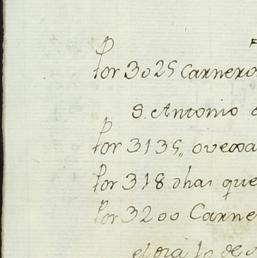 Por 3025 Carnero
S. Antonio
Por 3135,, ovexa
Por 318 dhas que
Por 3200 Carne
el dia 10 de